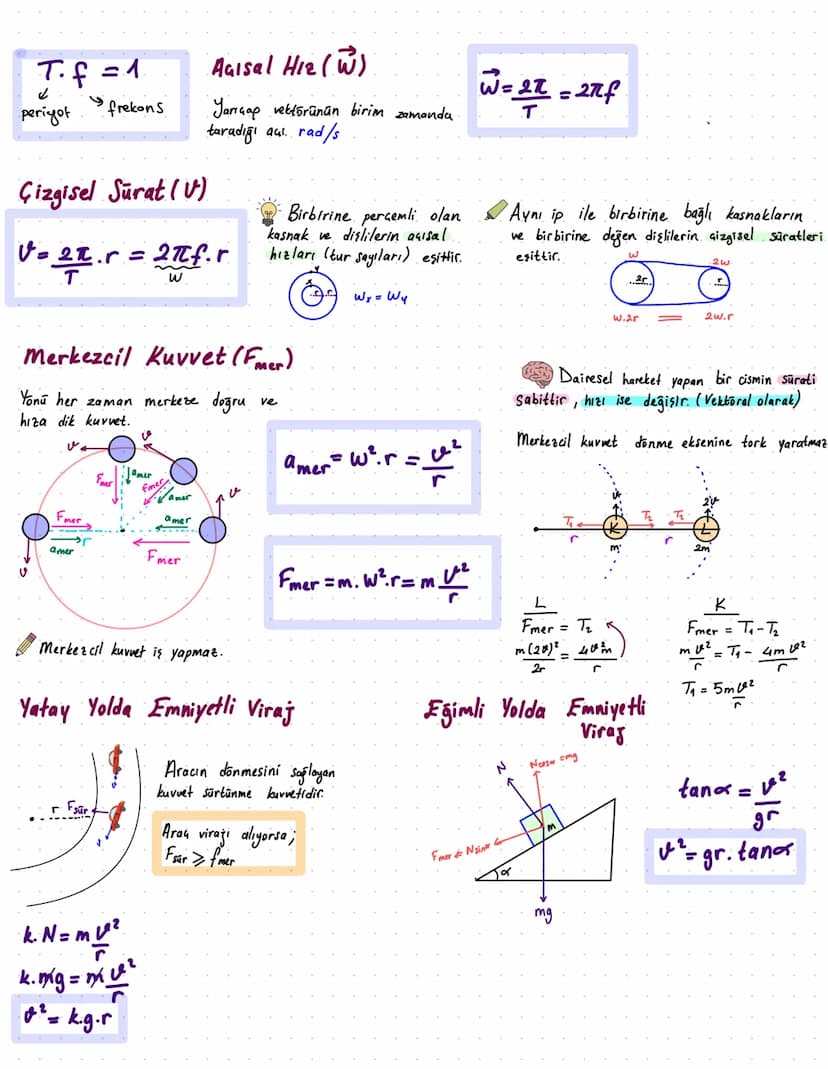 T. f = 1
periyot
frekans
Açısal Hız (w⃗)
Yarıçap vektörünün birim zamanda
taradığı açı. rad/s
w⃗ = 2π/T = 2πf
Çizgisel Sürat (v)
v = 2π/T . r = 2πf . r
w
Birbirine perçemli olan
kasnak ve dişlilerin açısal
hızları (tur sayıları) eşittir.
x y
r r
wx = wy
Aynı ip ile birbirine bağlı kasnakların
ve birbirine değen dişlilerin çizgisel süratleri
eşittir.
w 2w
2r r
w.2r = 2w.r
Merkezcil Kuvvet (Fmer)
Yönü her zaman merkeze doğru ve
hıza dik kuvvet.
v v
Fmer amer Fmer amer v
Fmer amer
amer r Fmer
v
Merkezcil kuvvet iş yapmaz.
amer = w².r = v²/r
Fmer = m. w².r = m v²/r
Dairesel hareket yapan bir cismin sürati
sabittir, hızı ise değişir. (Vektörel olarak)
Merkezcil kuvvet dönme eksenine tork yaratmaz
v 2v
T₁ K T₂ T₂ L
r m r 2m
L
Fmer = T₂
m(2v)²/2r = 4v²m/r
K
Fmer = T₁ - T₂
m v²/r = T₁ - 4m v²/r
T₁ = 5m v²/r
Yatay Yolda Emniyetli Viraj
r Fsür
v
v
Aracın dönmesini sağlayan
kuvvet sürtünme kuvvetidir.
Araç virajı alıyorsa;
Fsür ⩾ fmer
k. N = m v²/r
k. mg = m v²/r
v² = k.g.r
Eğimli Yolda Emniyetli
Viraj
N Ncosα = mg
Fmer = Nsinα m
α
mg
tanα = v²/gr
v² = gr. tanα